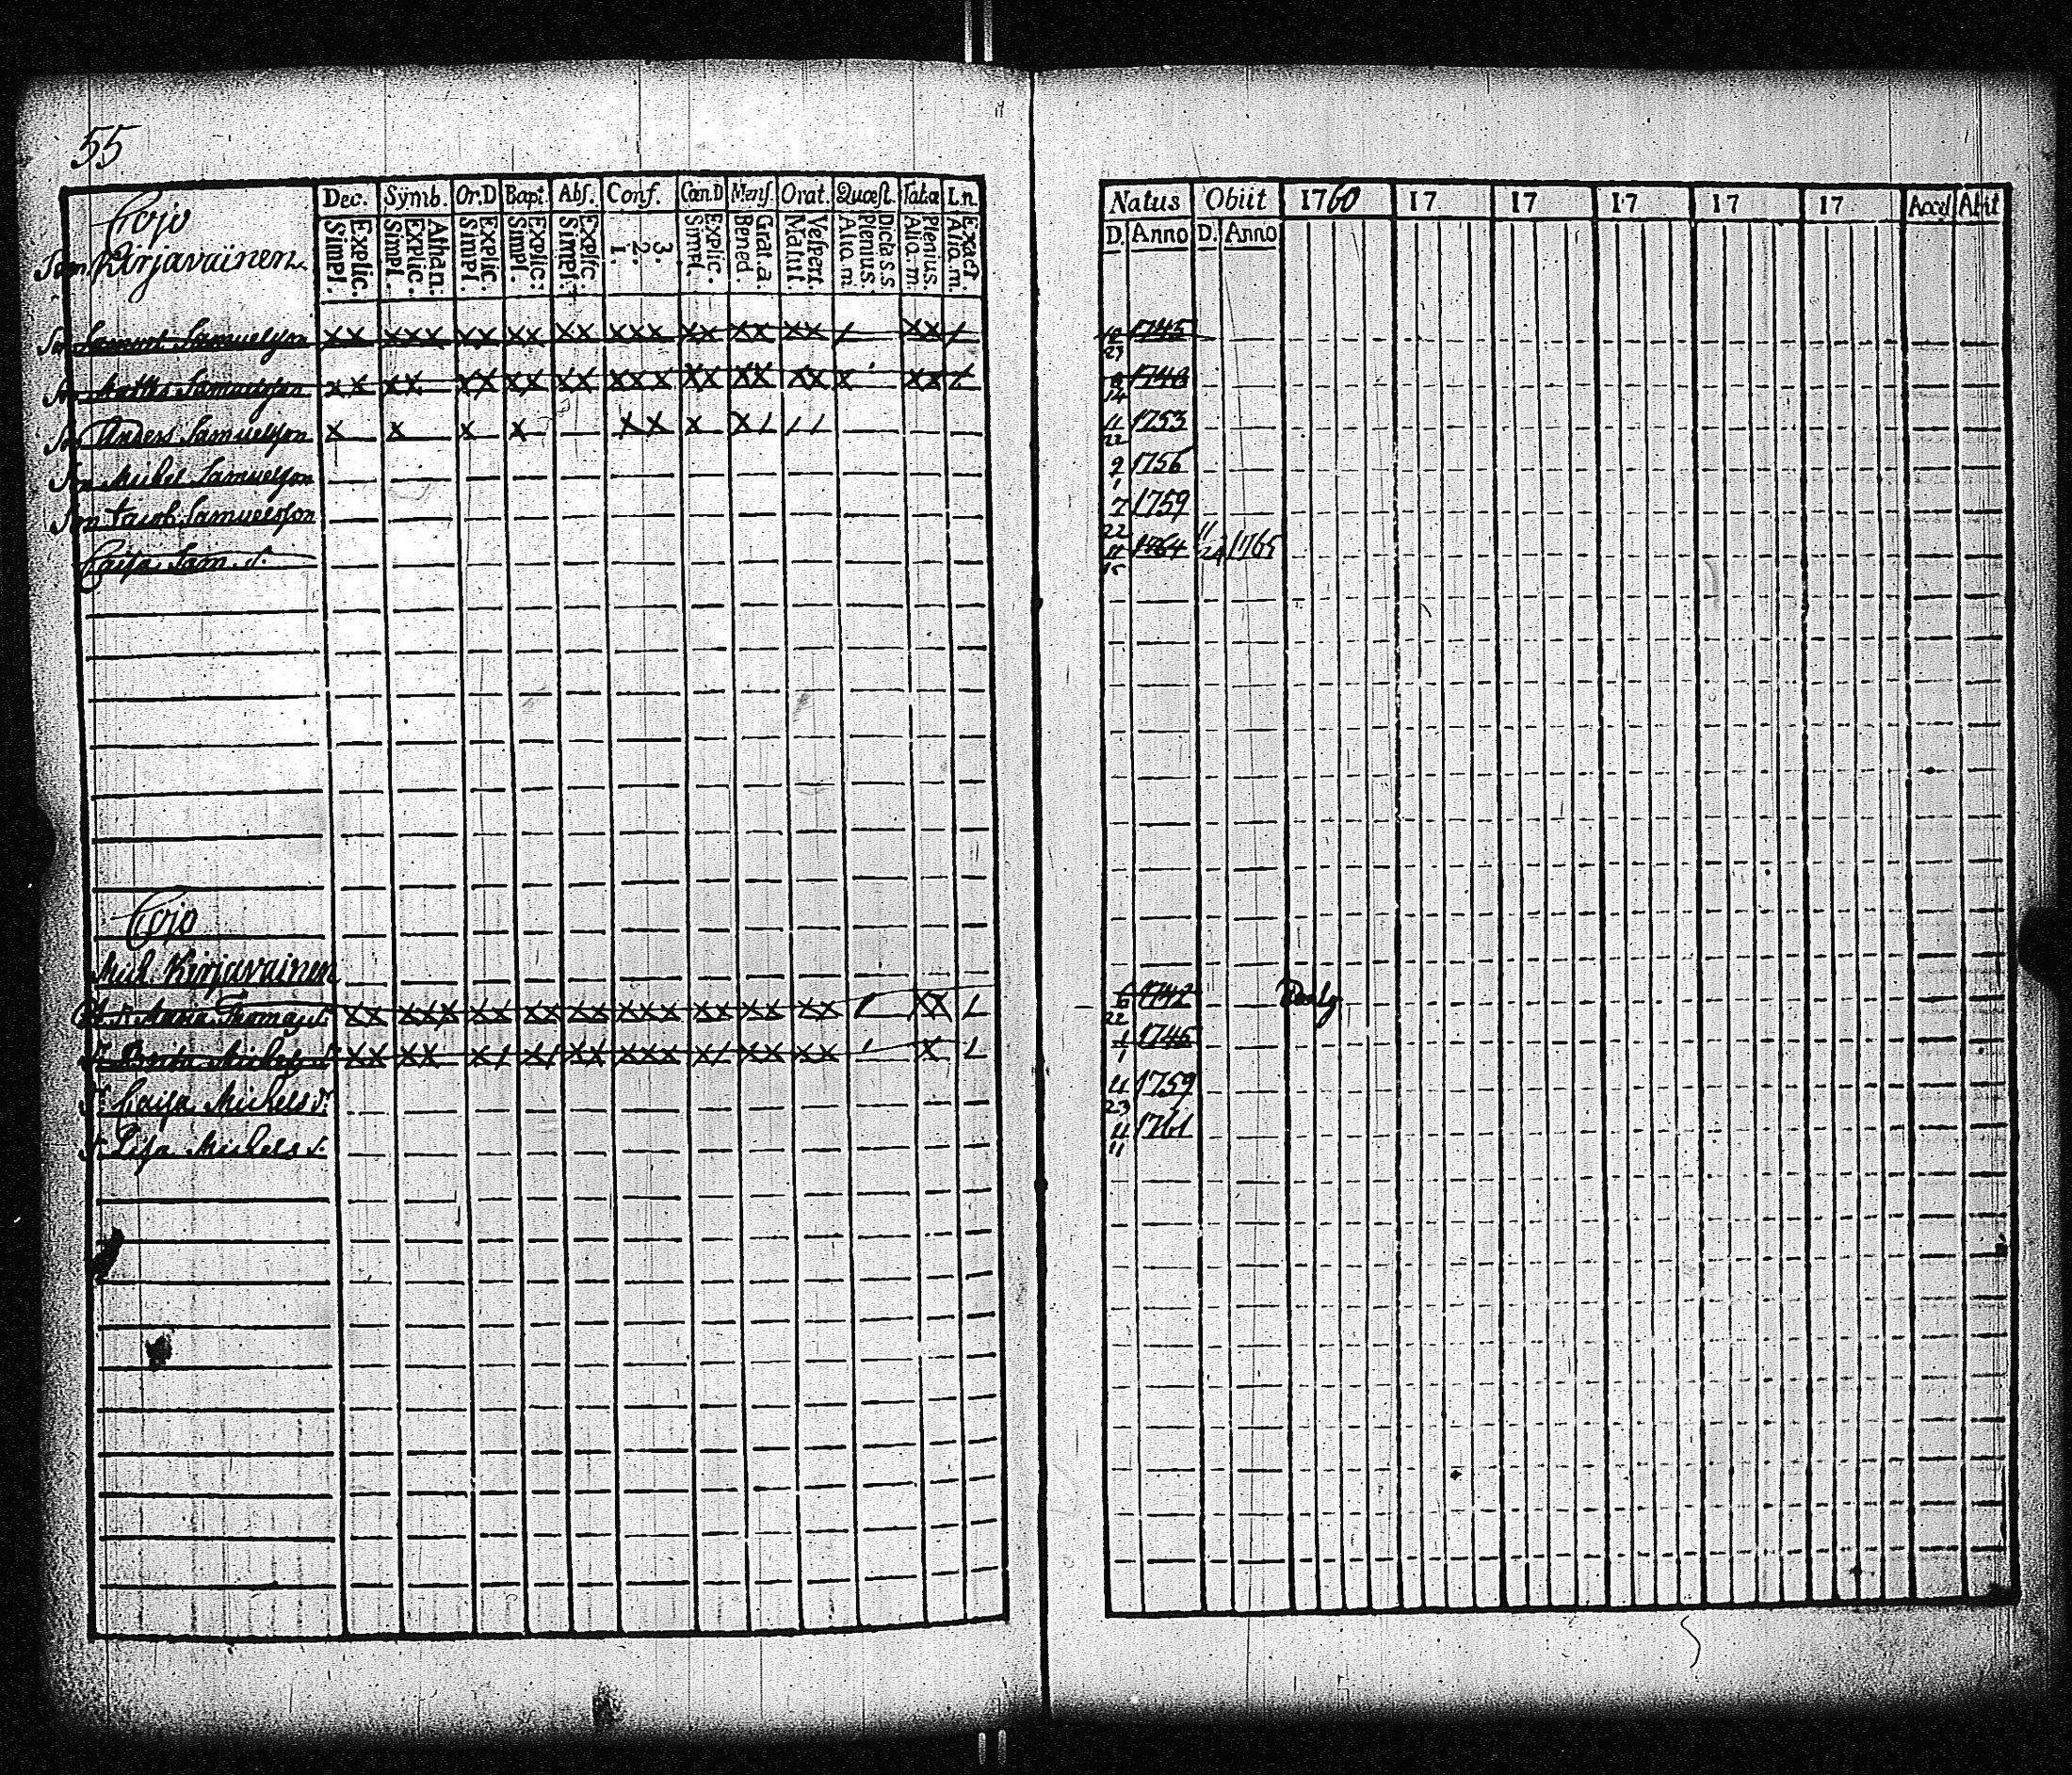 55
Cojo
Sam Kirjavainen
Dec. Symb. Or.D Bapt. Abs. Conf. Cœn.D Mens. Orat. Quæst. Tabla I.n.
Simpl. Explic. Simpl. Explic. Athan: Simpl. Explic. Simpl. Explic: Simpl. Explic. 1. 2. 3. Simpl. Explic. Bened. Grat.a. Matut. Vespert. Alia.m. Plenius. Dicta.s.s. Alia.m. Plenius. Alia.m. Exact.
Natus Obiit 1760 17 17 17 17 17 Access Abit
D. Anno D. Anno
Son Samuelsson xx xxx xx xx xx xxx xx xx xx / xx / 12 29 1745
Son Matths Samuelsson xx xx xx xx xx xxx xx xx xx x xx / 14 1748
Son Anders Samuelsson x x x x xx x x/ // 11 22 1753
Son Michel Samuelsson 9 1 1756
Son Jacob Samuelsson 7 22 1759
Caisa Sam. d. 11 15 1764 11 24 1765
Cojo
Mich. Kirjavainen
Maria Thomasd. xx xxx xx xx xx xxx xx xx xx / xx / 6 22 1742
Michelsd. xx xx x/ x/ xx xxx x/ xx xx / x / 1 1 1746
Caisa Michels d. 11 23 1759
Lisa Michels d. 11 11 1761